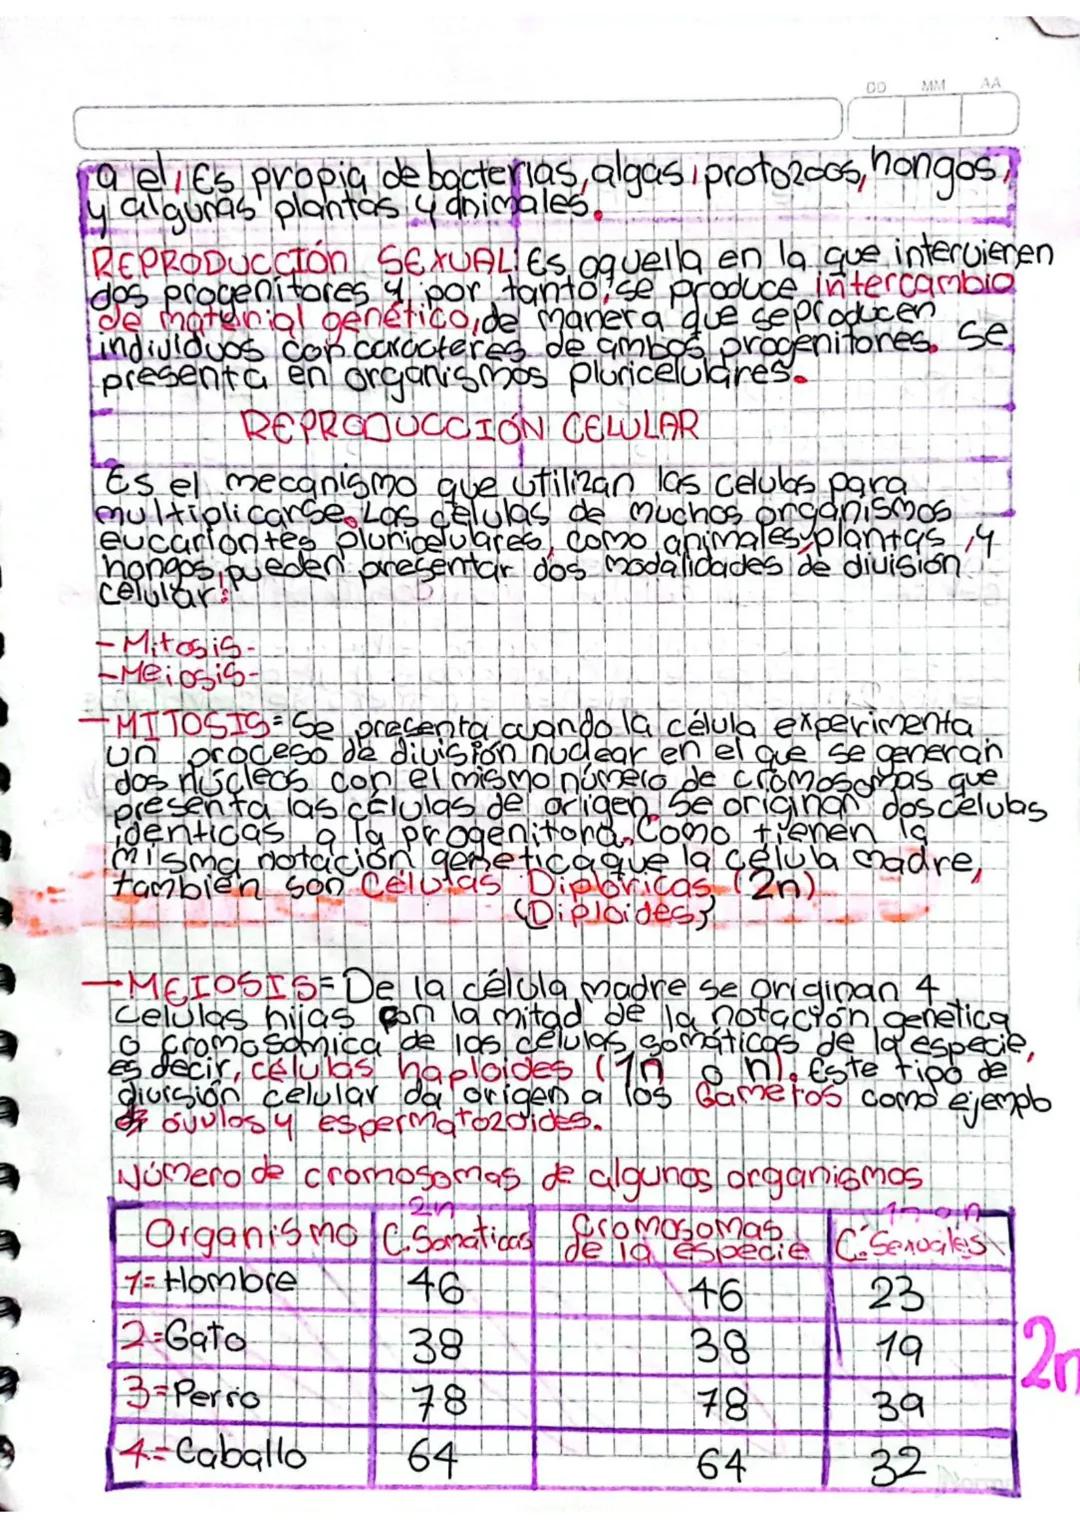 DD MM AA
a el, Es propia de bacterias, algas, protozoos, hongos,
y algunas plantas y animales.
REPRODUCCIÓN SEXUAL: Es aquella en la que intervienen
dos progenitores y por tanto, se produce intercambio
de material genético, de manera que se producen
individuos con caracteres de ambos progenitores. Se
presenta en organismos pluricelulares.
REPRODUCCIÓN CELULAR
Es el mecanismo que utilizan las celulas para
multiplicarse. Las células de muchos organismos
eucariontes pluricelulares, como animales, plantas, y
hongos, pueden presentar dos modalidades de división
celular:
- Mitosis-
- Meiosis-
- MITOSIS= Se presenta cuando la célula experimenta
un proceso de división nuclear en el que se generan
dos núcleos con el mismo número de cromosomas que
presenta las células de origen. Se originan dos celulas
identicas a la progenitora. Como tienen la
misma notación genetica que la célula madre,
tambien son Células Diploricas (2n)
{Diploides}
- MEIOSIS= De la célula madre se originan 4
celulas hijas con la mitad de la notación genetica
o cromosómica de las células somáticas de la especie,
es decir, células haploides (1n o n). Este tipo de
división celular da origen a los Gametos como ejemplo
óvulos y espermatozoides.
Número de cromosomas de algunos organismos
2n 1n o n
Organismo C. Somaticas Cromosomas de la especie C. Sexuales
1= Hombre 46 46 23
2= Gato 38 38 19
3= Perro 78 78 39
4= Caballo 64 64 32
2n
Norma